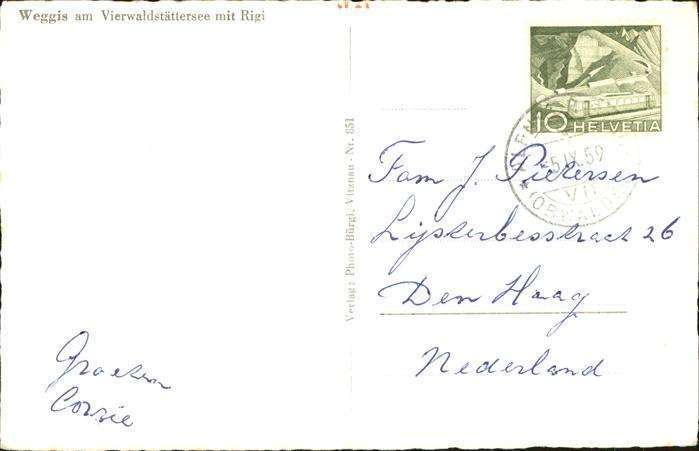 Weggis am Vierwaldstättersee mit Rigi
Verlag: Photo-Bürgi, Vitznau - Nr. 851
10 HELVETIA
5.IX.59
VII
(OBWALDEN)
Fam J. Pietersen
Lijsterbesstraat 26
Den Haag
Nederland
Groeten
Corrie